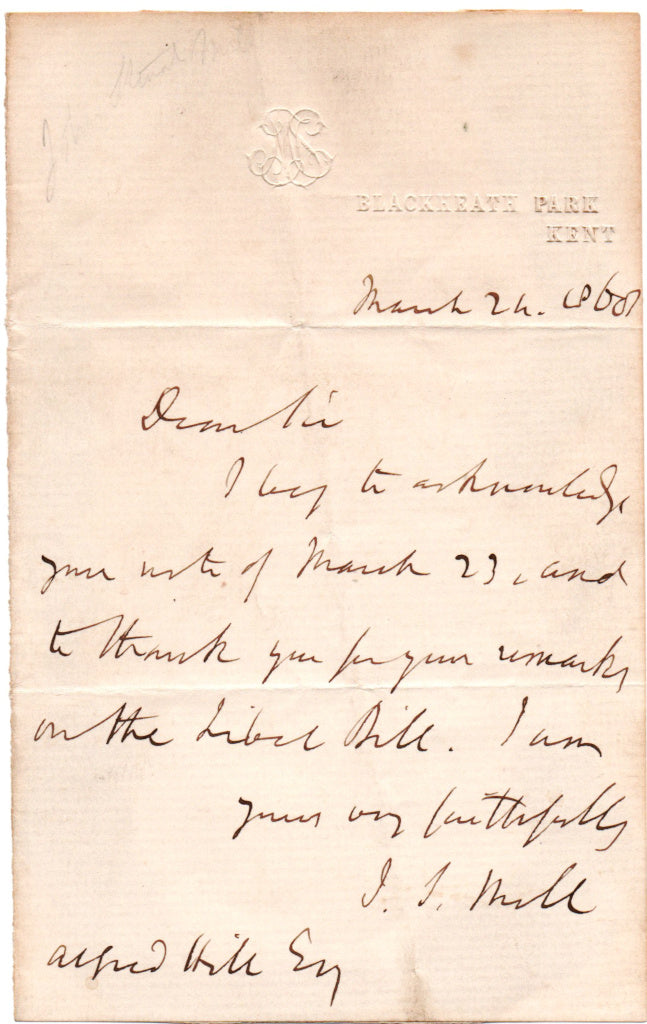 John Stuart Mill
BLACKHEATH PARK
KENT
March 24. 1868
Dear Sir
I beg to acknowledge
your note of March 23, and
to thank you for your remarks
on the Libel Bill. I am
yours very faithfully
J. S. Mill
Alfred Hill Esq